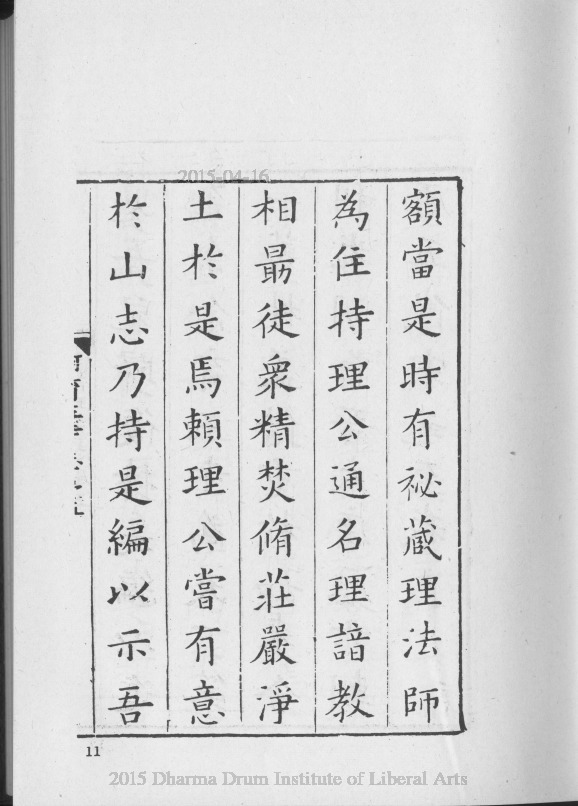 2015-04-16
額當是時有祕藏理法師
為住持理公通名理諳教
相最徒衆精焚脩莊嚴淨
土於是焉賴理公嘗有意
於山志乃持是編以示吾
11
2015 Dharma Drum Institute of Liberal Arts